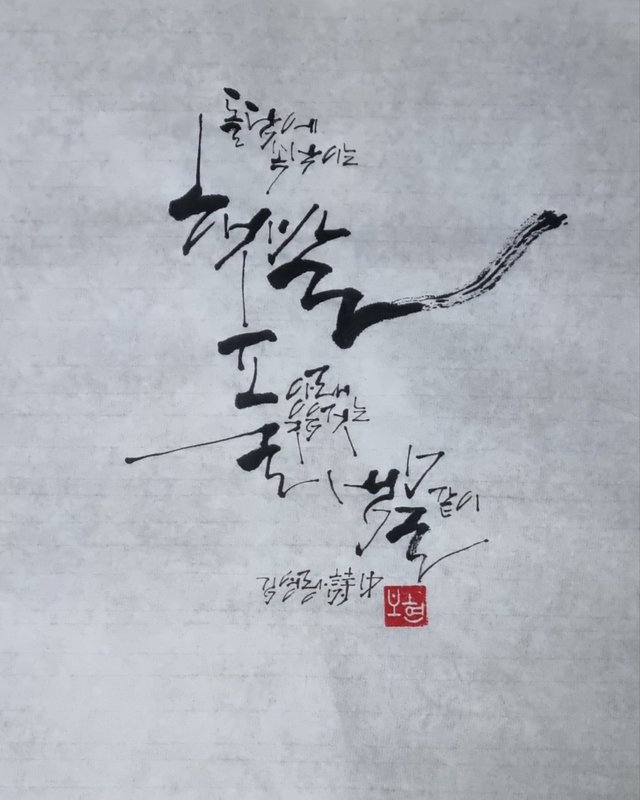 돌담에
속삭이는
햇발
풀 아래
웃음짓는
샘물같이
김영랑 詩 中
보현